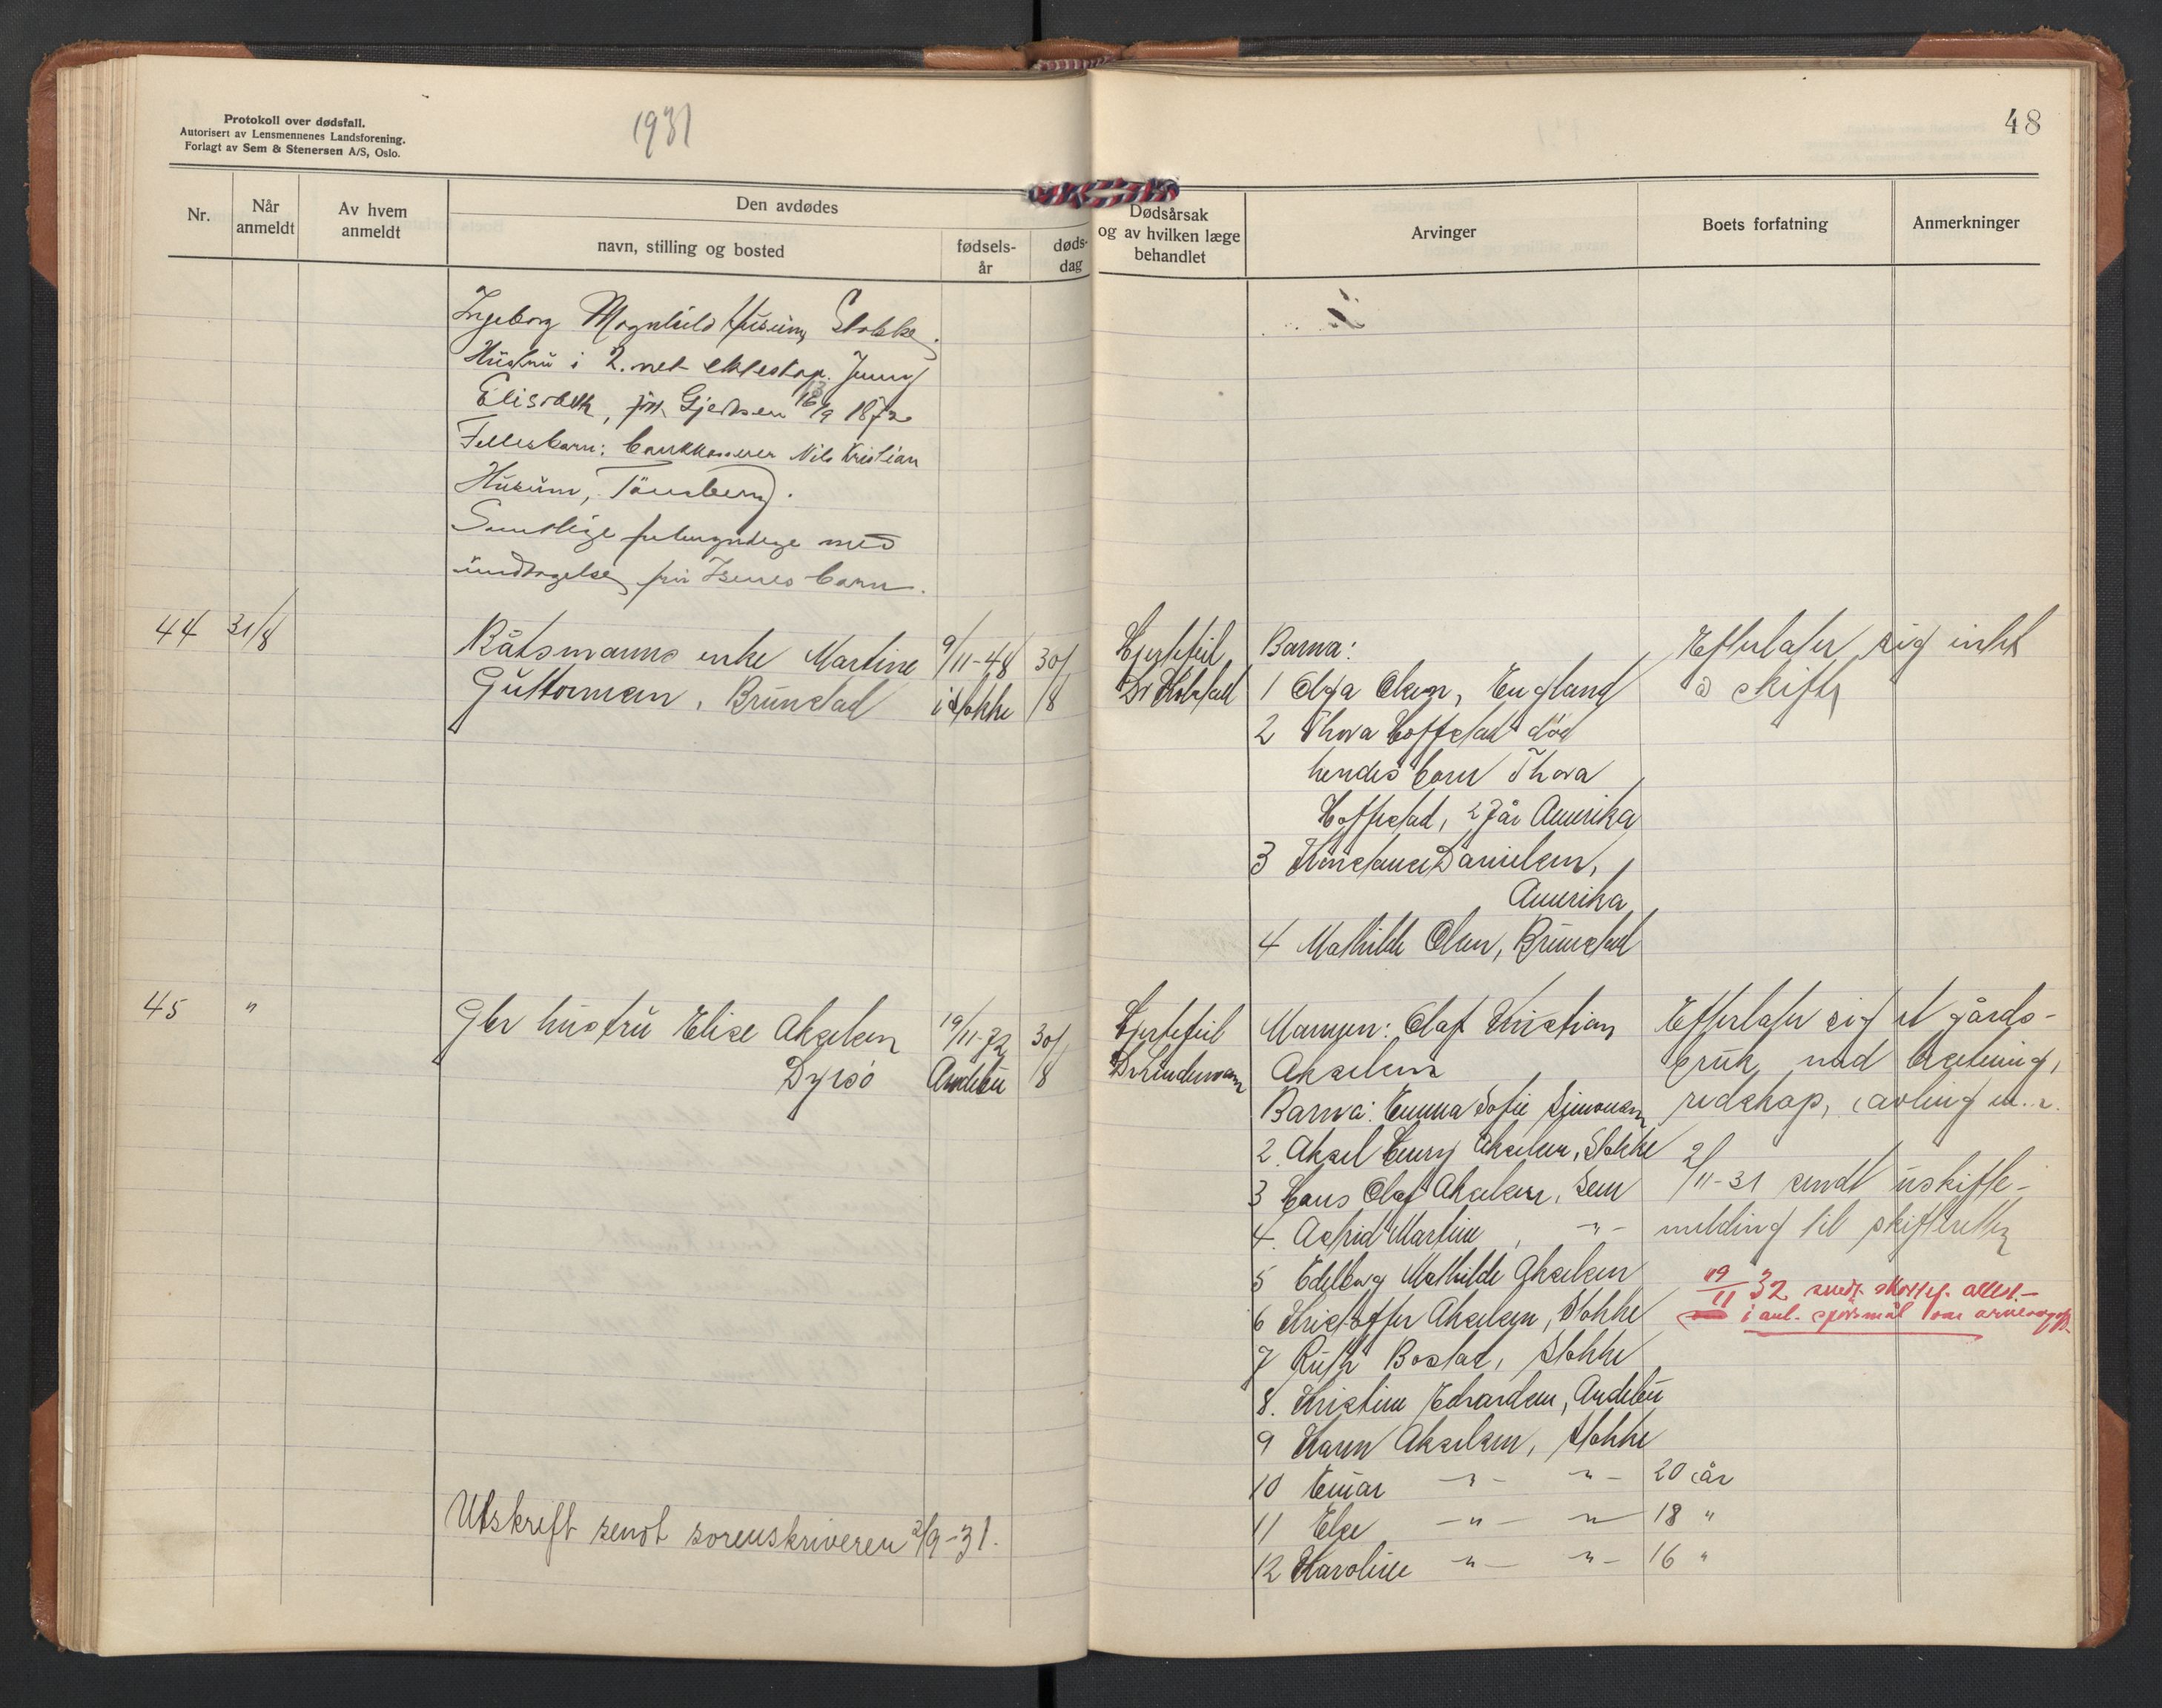 Protokoll over dødsfall.
Autorisert av Lensmennenes Landsforening.
Forlagt av Sem & Stenersen A/S, Oslo.
1931
48
Nr.
Når anmeldt
Av hvem anmeldt
Den avdødes
navn, stilling og bosted
fødsels-år
døds-dag
Dødsårsak og av hvilken læge behandlet
Arvinger
Boets forfatning
Anmerkninger
Ingeborg Magnhild Husum, Stokke.
Hustru i 2. net ektestap. Jenny
Elisabeth, født Gjertsen /9 1872
Fellesbarn: bankkasserer Nils Kristian
Husum, Tønsberg.
Samtlige fuldmyndige med
undtagelse for Irenes barn.
44 31/8
Båtsmanns enke Martine 9/11-48 30/
Guttormsen, Brunstad i Stokke /8
Hjertefeil
Dr
Barna:
1 Olga Olsen, England
2 Thora Hoffstad død
hendes barn Thora
Hoffstad, 27 år Amerika
3 Konstance Danielsen,
Amerika
4 Mathilde Olsen, Brunstad
Efterlater sig intet
å skifte
45 "
Gbr hustru Elise Akselsen 19/11-72 30/
Dyrsø Andebu /8
Hjertefeil
Dr Lindemann
Mannen: Olaf Kristian
Akselsen
Barna: Emma Sofie Simonsen
2. Aksel Henry Akselsen, Stokke
3 Hans Olaf Akselsen, Sem
4. Astrid Martine , -"-
5 Edelborg Mathilde Akselsen
6 Kristoffer Akselsen, Stokke
7 Ruth Bostad, Stokke
8. Kristine Edvardsen, Andebu
9 Karen Akselsen, Stokke
10 Einar -"- -"- 20 år
11 Else -"- -"- 18 "
12 Karoline -"- -"- 16 "
Efterlater sig et gårds-
bruk med besetning,
redskap, avling m.v.
2/11-31 sendt uskifte-
melding til skifteretten
19/11 32 sendt skattef. attest.-
i anl. spørsmål om arveavgift.
Utskrift sendt sorenskriveren 2/9-31.